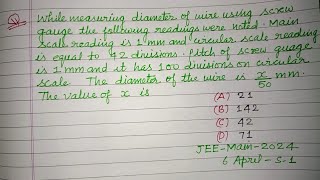 Q. While measuring diameter of wire using screw
gauge the following readings were noted. Main
scale reading is 1 mm and circular scale reading
is equal to 42 divisions. Pitch of screw guage
is 1 mm and it has 100 divisions on circular
scale. The diameter of the wire is x/50 mm.
The value of x is
(A) 21
(B) 142
(C) 42
(D) 71
JEE-Main-2024
6 April-S-1